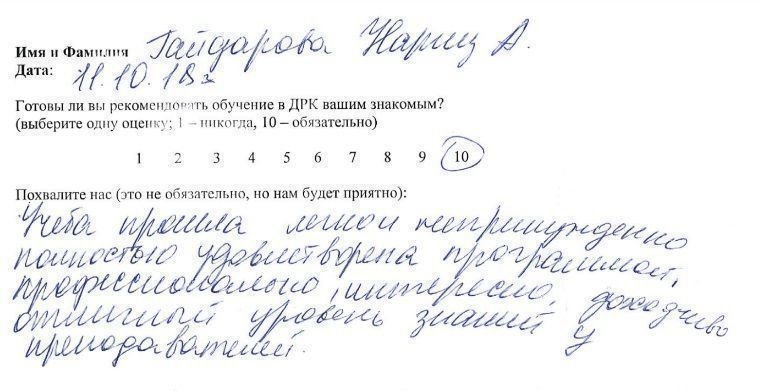 Имя и Фамилия Гайдарова Нариц А.
Дата: 11.10.18г
Готовы ли вы рекомендовать обучение в ДРК вашим знакомым?
(выберите одну оценку; 1 – никогда, 10 – обязательно)
1 2 3 4 5 6 7 8 9 10
Похвалите нас (это не обязательно, но нам будет приятно):
Учеба прошла легко и непринужденно
полностью удовлетворена программой,
профессионально, интересно, доходчиво
отличный уровень знаний у
преподавателей.